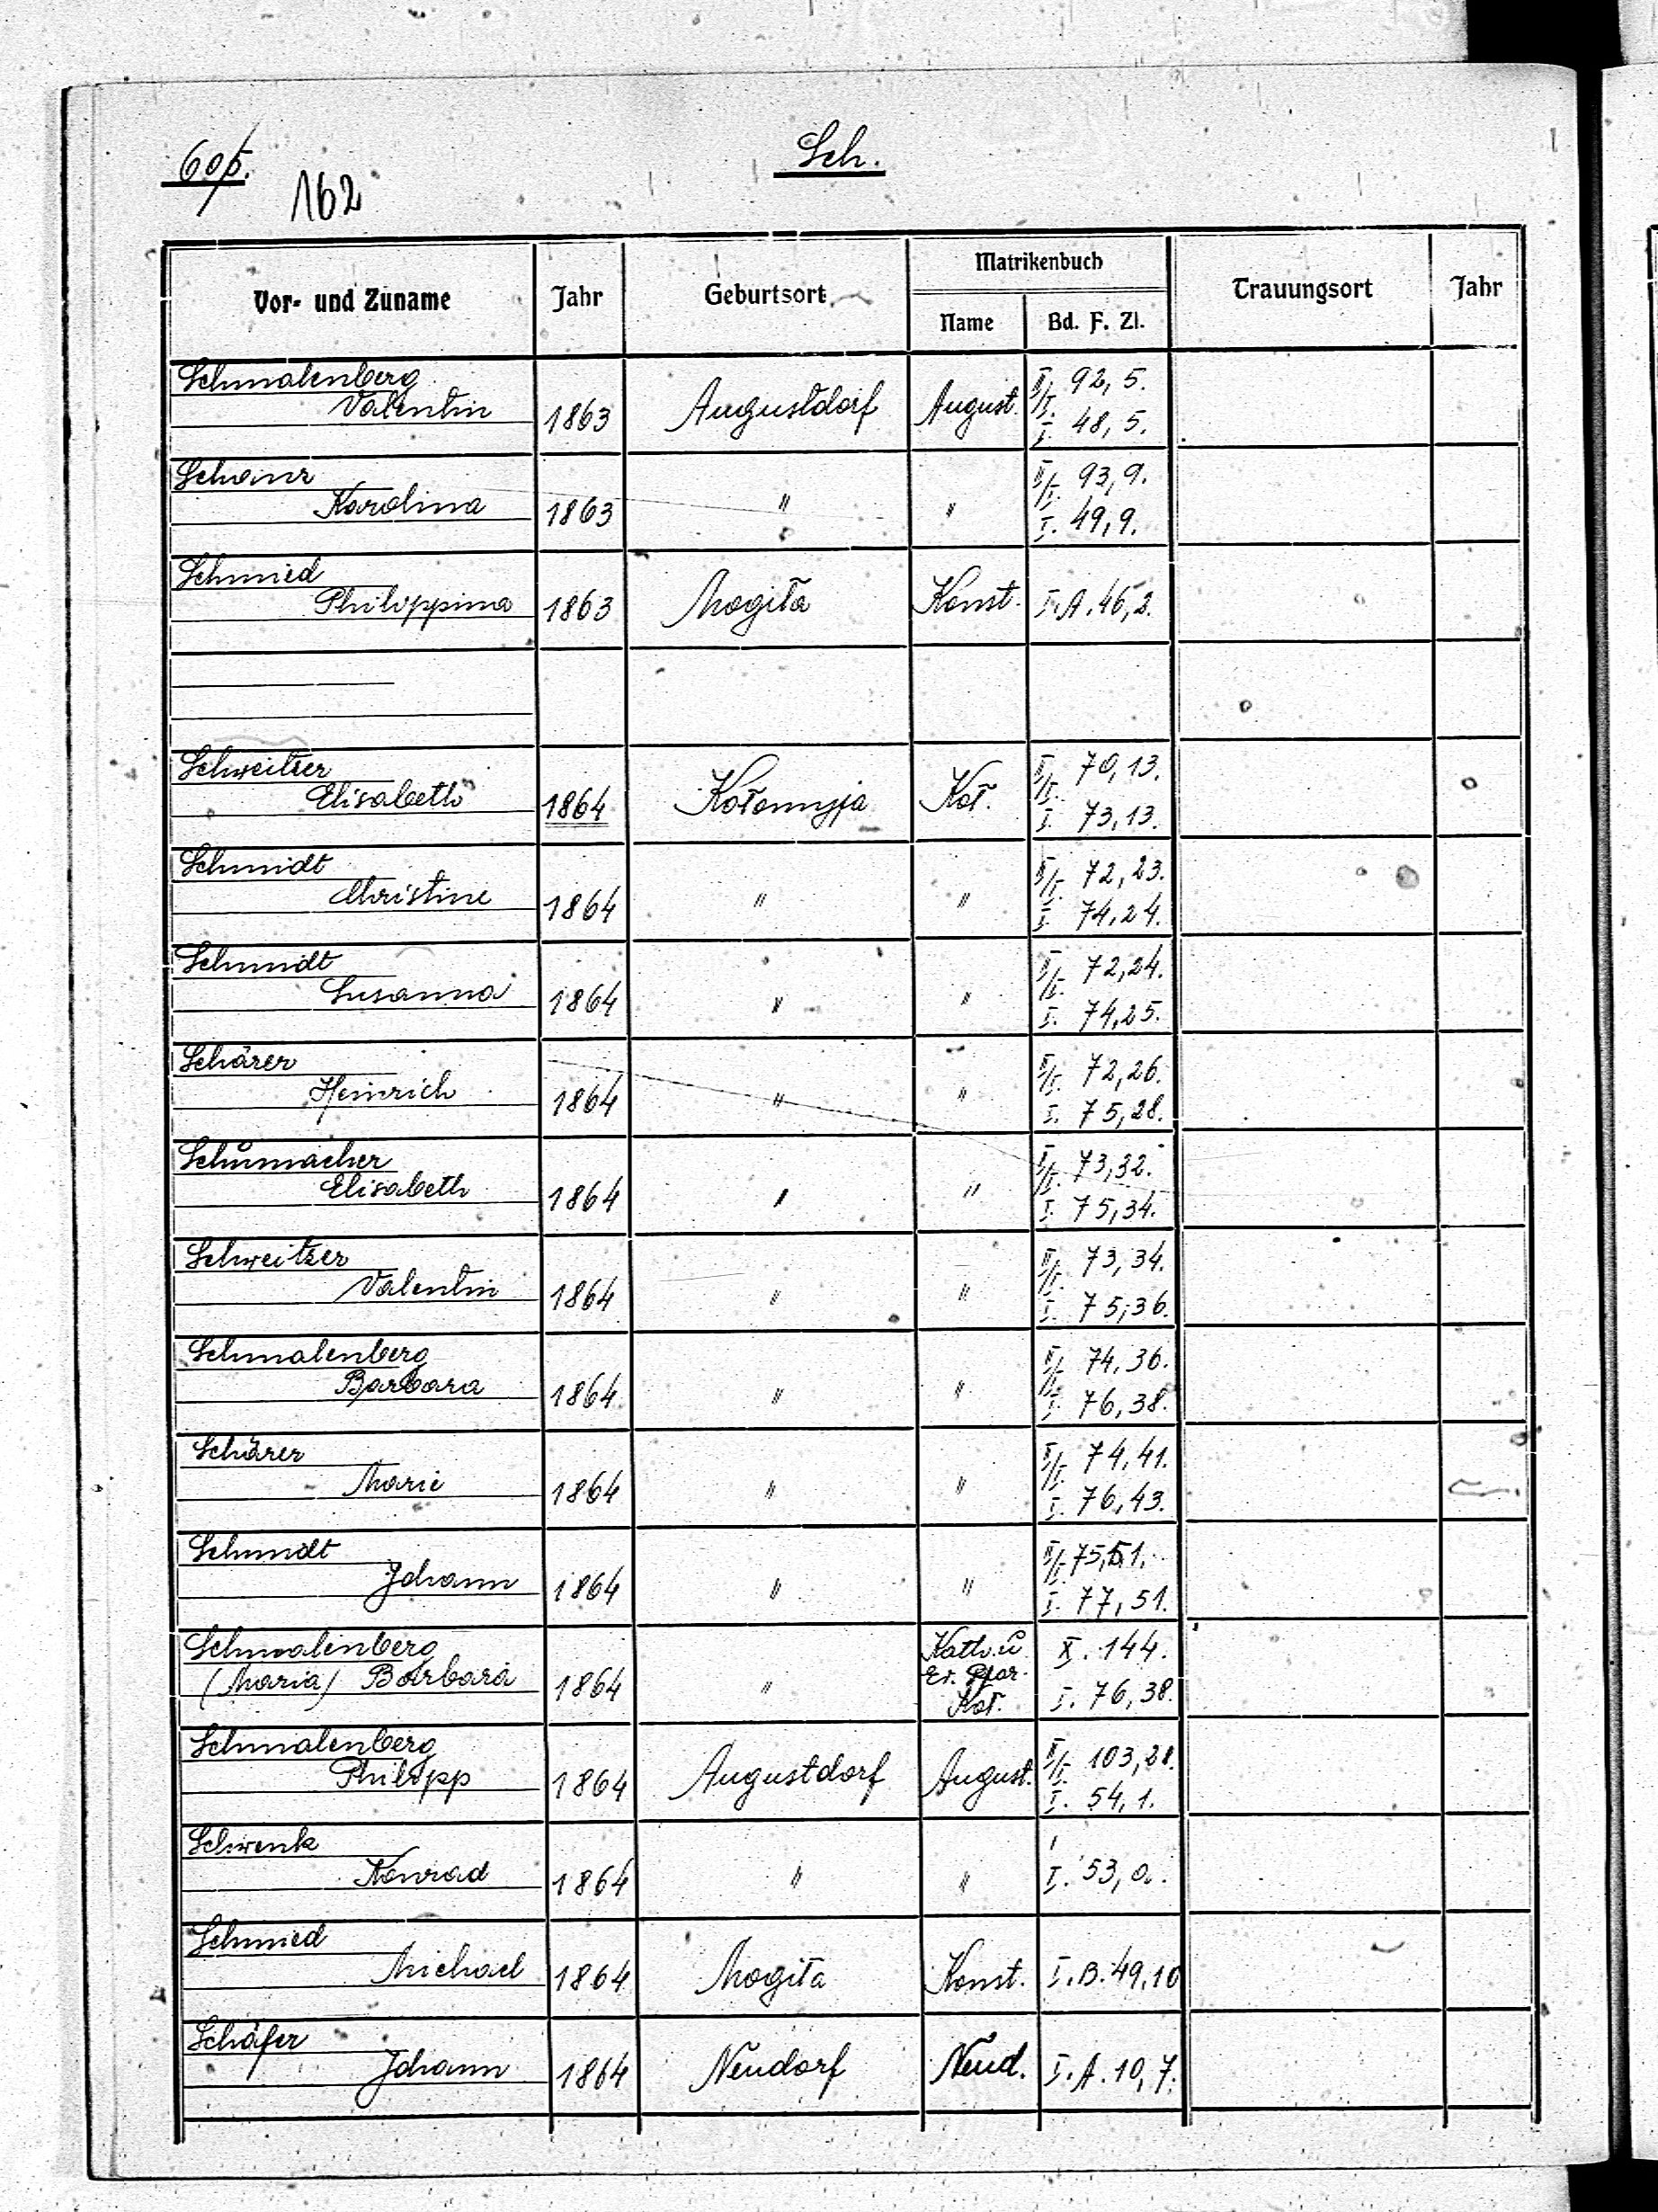 605.
162
Sch.
Vor- und Zuname Jahr Geburtsort Matrikenbuch Trauungsort Jahr
Name Bd. F. Zl.
Schmalenberg II/I. 92, 5.
Valentin 1863 Augustdorf August. I. 48, 5.
Schanz II/I. 93, 9.
Karolina 1863 " " I. 49, 9.
Schmied
Philippina 1863 Mogiła Konst. I. A. 46, 2.
Schweitzer II/I. 70, 13.
Elisabeth 1864 Kołomyja Koł. I. 73, 13.
Schmidt II/I. 72, 23.
Christine 1864 " " I. 74, 24.
Schmidt II/I. 72, 24.
Susanna 1864 " " I. 74, 25.
Schärer II/I. 72, 26.
Heinrich 1864 " " I. 75, 28.
Schumacher II/I. 73, 32.
Elisabeth 1864 " " I. 75, 34.
Schweitzer II/I. 73, 34.
Valentin 1864 " " I. 75, 36.
Schmalenberg II/I. 74, 36.
Barbara 1864 " " I. 76, 38.
Schärer II/I. 74, 41.
Marie 1864 " " I. 76, 43.
Schmidt II/I. 75, 51.
Johann 1864 " " I. 77, 51.
Schmalenberg Kath. u. X. 144.
(Maria) Barbara 1864 " Ev. Pfar. Koł. I. 76, 38.
Schmalenberg II/I. 103, 28.
Philipp 1864 Augustdorf August. I. 54, 1.
Schwenk
Konrad 1864 " " I. 53, 0.
Schmied
Michael 1864 Mogiła Konst. I. B. 49, 10
Schäfer
Johann 1864 Neudorf Neud. I. A. 10, 7.